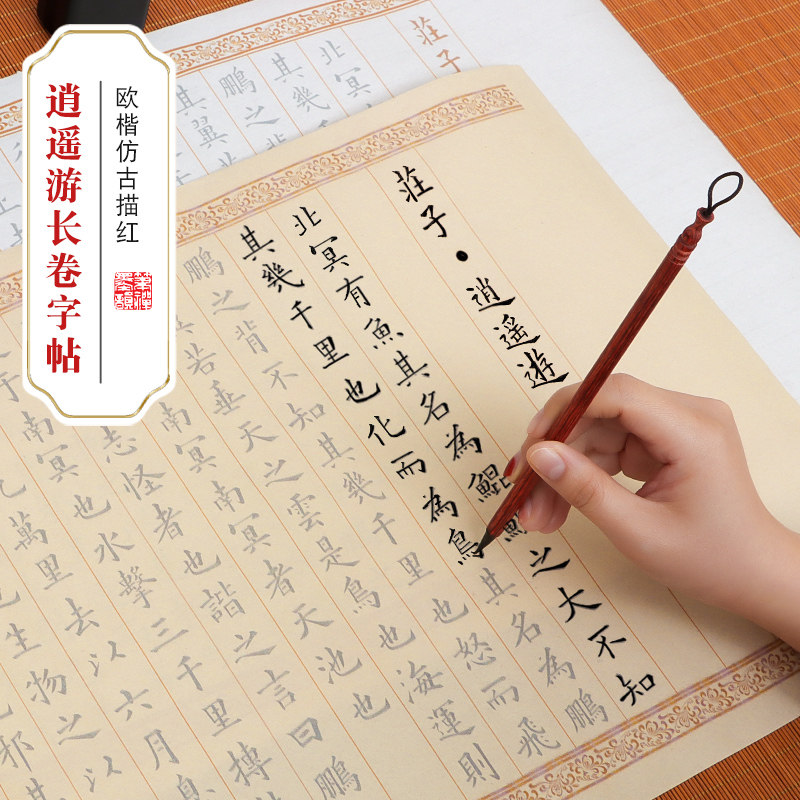 逍遥游长卷字帖
欧楷仿古描红
莊子
北冥
其幾
鵬之
其翼
莊子·逍遥遊
北冥有魚其名為鯤鯤之大不知
其幾千里也化而為鳥其名為鵬
鵬之背不知其幾千里也怒而飛
翼若垂天之雲是鳥也海運則
南冥南冥者天池也
志怪者也諧之言曰鵬
於南冥也水擊三千里摶
萬里去以六月息
也生物之以
邪其